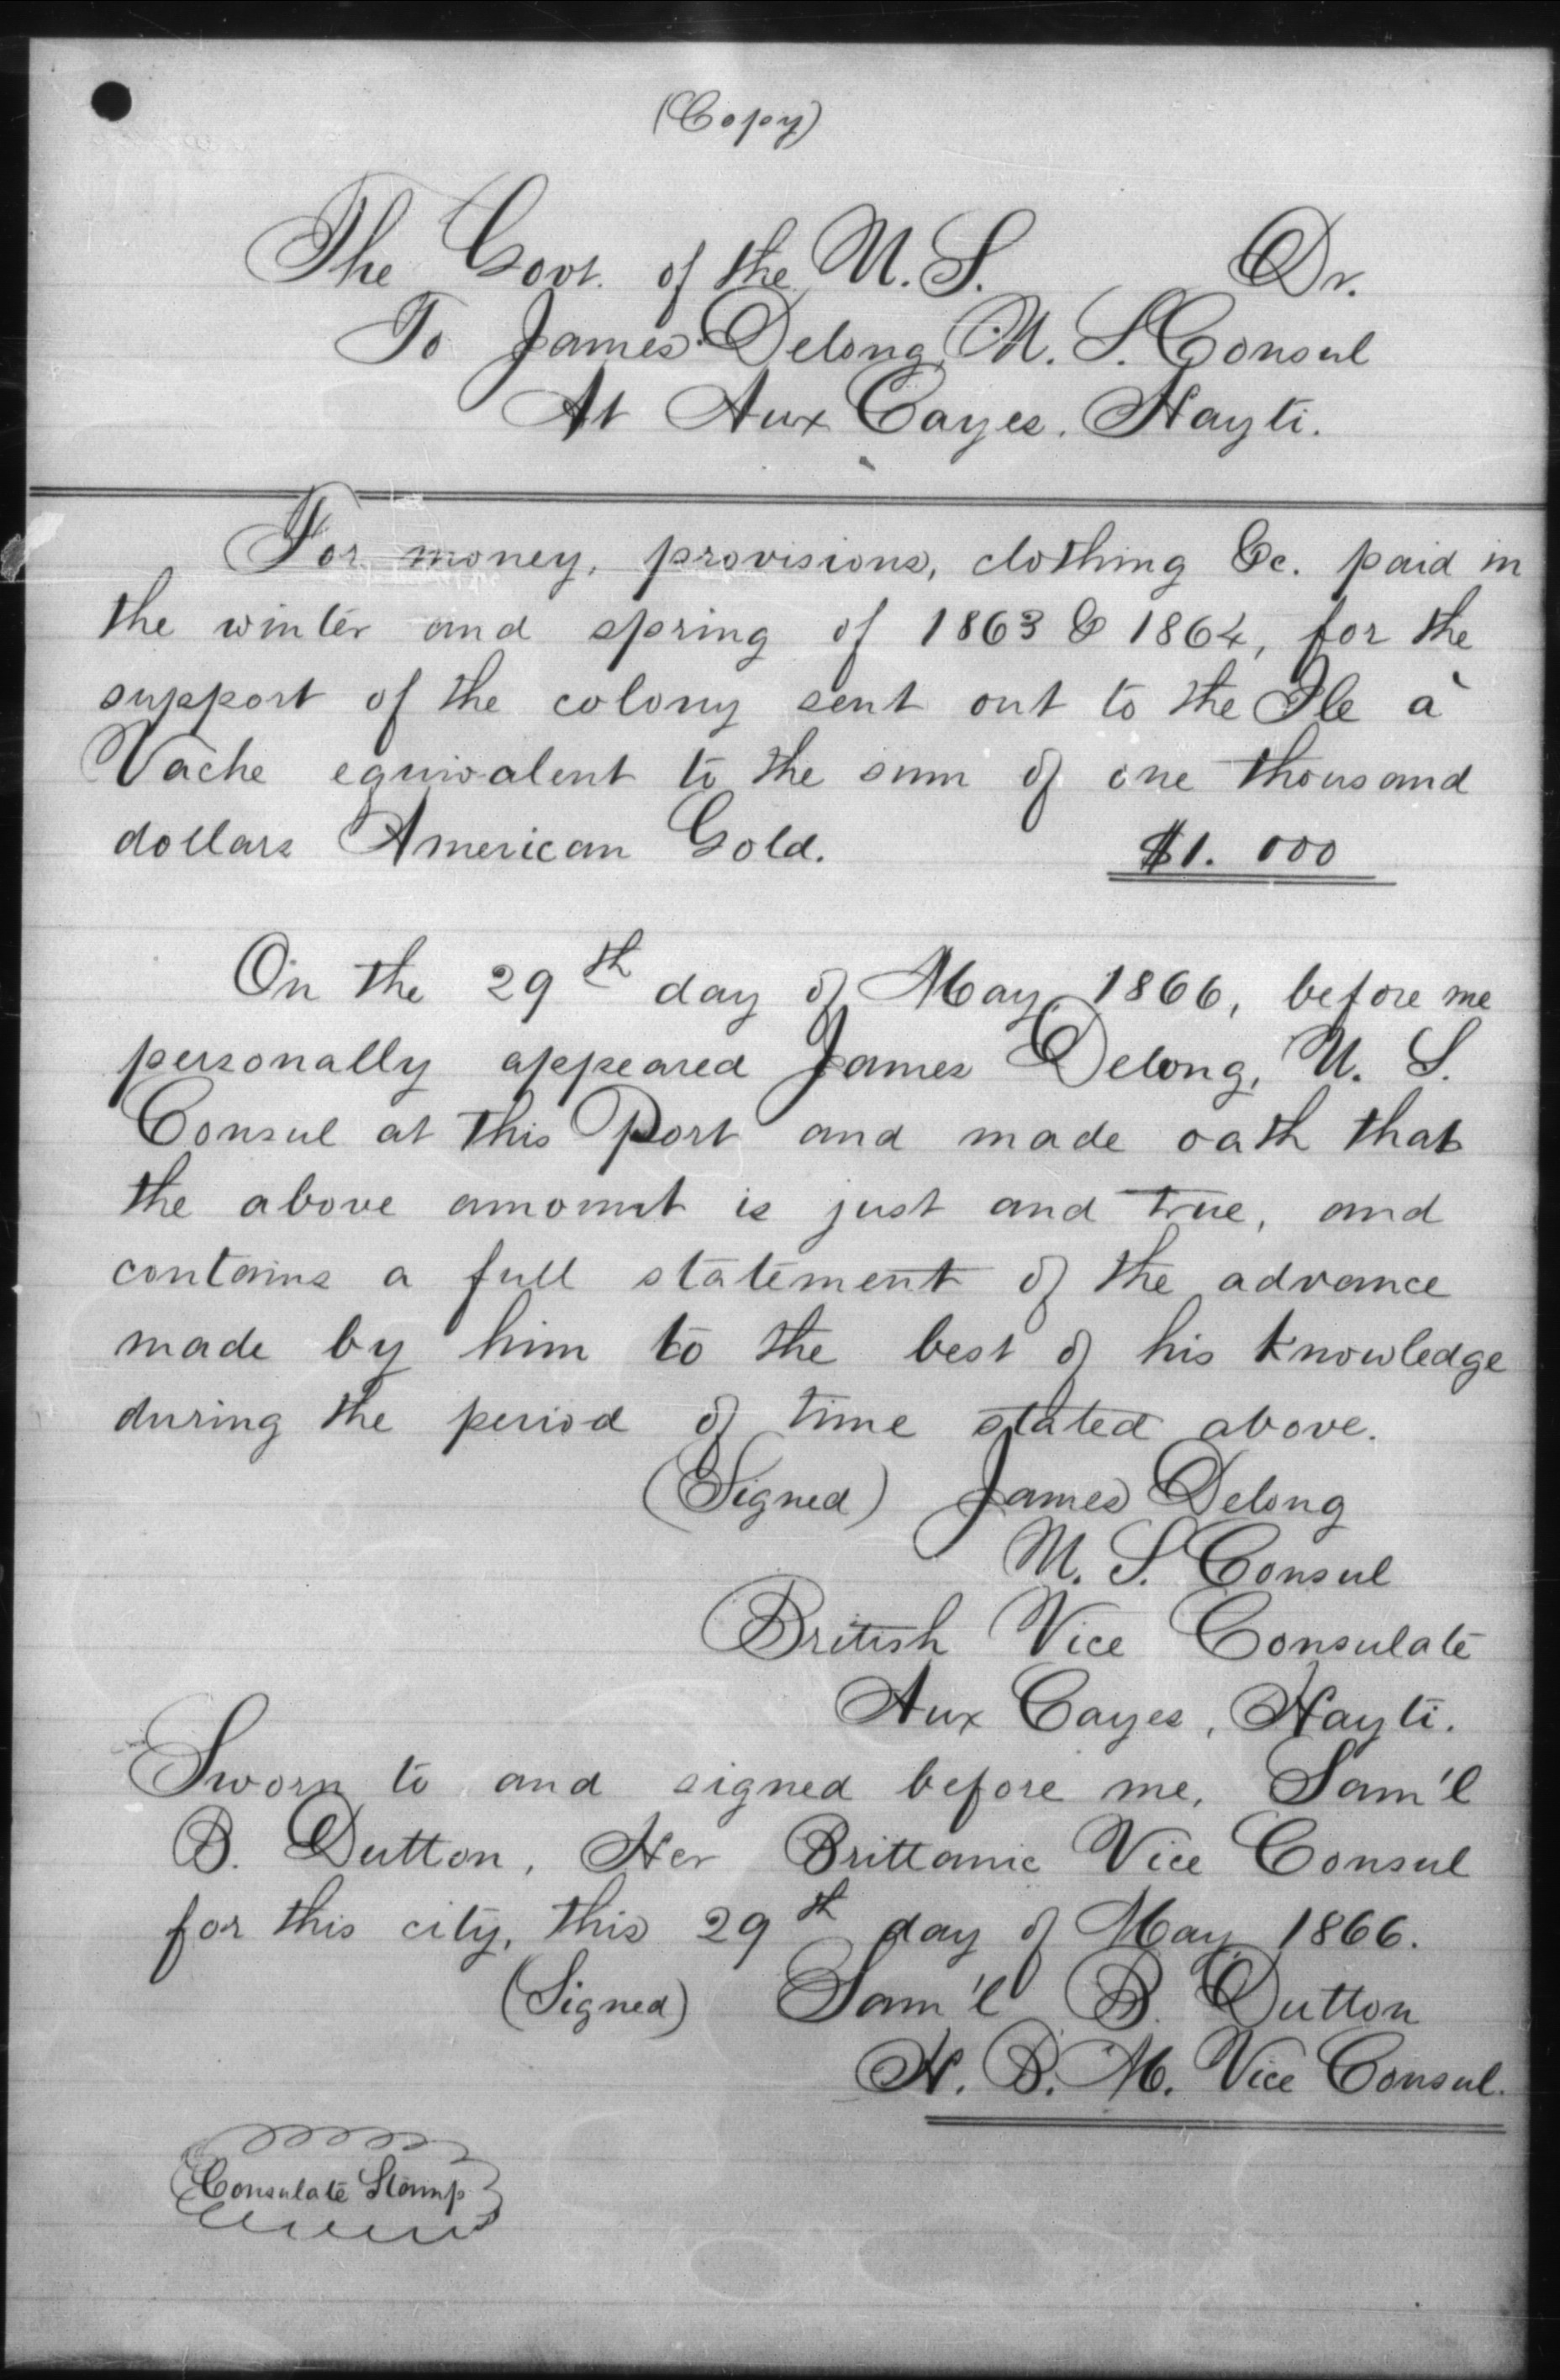 (Copy)
The Govt. of the U. S. Dr.
To James Delong, U. S. Consul
At Aux Cayes, Hayti.
For money, provisions, clothing &c. paid in
the winter and spring of 1863 & 1864, for the
support of the colony sent out to the Ile à
Vache equivalent to the sum of one thousand
dollars American Gold. $1.000
On the 29th day of May, 1866, before me
personally appeared James Delong, U. S.
Consul at this Port and made oath that
the above amount is just and true, and
contains a full statement of the advance
made by him to the best of his knowledge
during the period of time stated above.
(Signed) James Delong
U. S. Consul
British Vice Consulate
Aux Cayes, Hayti.
Sworn to and signed before me, Sam'l
B. Dutton, Her Brittanic Vice Consul
for this city, this 29th day of May, 1866.
(Signed) Sam'l B. Dutton
H. B. M. Vice Consul.
Consulate Stamp